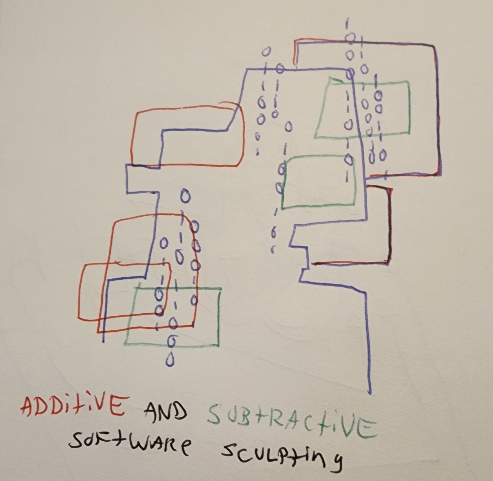 ADDITIVE AND SUBTRACTIVE
SOFTWARE SCULPTING